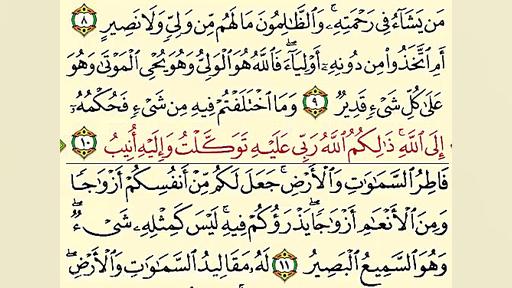 مَن يَشَآءُ فِى رَحْمَتِهِۦ ۚ وَٱلظَّٰلِمُونَ مَا لَهُم مِّن وَلِىٍّ وَلَا نَصِيرٍ ٨
أَمِ ٱتَّخَذُوا۟ مِن دُونِهِۦٓ أَوْلِيَآءَ ۖ فَٱللَّهُ هُوَ ٱلْوَلِىُّ وَهُوَ يُحْىِ ٱلْمَوْتَىٰ وَهُوَ
عَلَىٰ كُلِّ شَىْءٍ قَدِيرٌ ٩ وَمَا ٱخْتَلَفْتُمْ فِيهِ مِن شَىْءٍ فَحُكْمُهُۥٓ
إِلَى ٱللَّهِ ۚ ذَٰلِكُمُ ٱللَّهُ رَبِّى عَلَيْهِ تَوَكَّلْتُ وَإِلَيْهِ أُنِيبُ ١٠
فَاطِرُ ٱلسَّمَٰوَٰتِ وَٱلْأَرْضِ ۚ جَعَلَ لَكُم مِّنْ أَنفُسِكُمْ أَزْوَٰجًا
وَمِنَ ٱلْأَنْعَٰمِ أَزْوَٰجًا ۖ يَذْرَؤُكُمْ فِيهِ ۚ لَيْسَ كَمِثْلِهِۦ شَىْءٌ ۖ
وَهُوَ ٱلسَّمِيعُ ٱلْبَصِيرُ ١١ لَهُۥ مَقَالِيدُ ٱلسَّمَٰوَٰتِ وَٱلْأَرْضِ ۖ